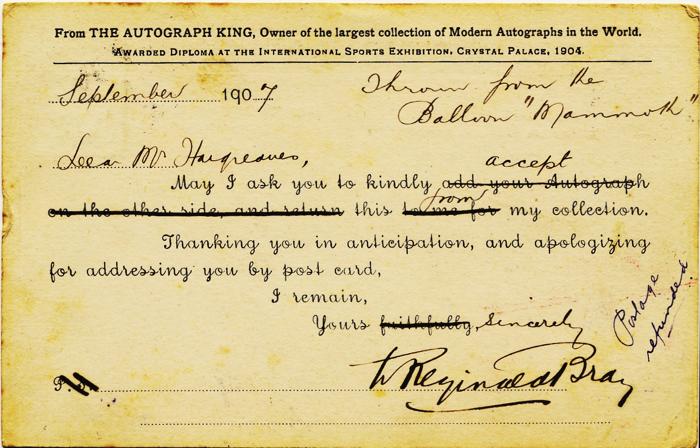 From THE AUTOGRAPH KING, Owner of the largest collection of Modern Autographs in the World.
AWARDED DIPLOMA AT THE INTERNATIONAL SPORTS EXHIBITION, CRYSTAL PALACE, 1904.
September 1907
Thrown from the
Balloon "Mammoth"
Dear Mr Hargreaves,
accept
May I ask you to kindly add your Autograph
from
on the other side, and return this to me for my collection.
Thanking you in anticipation, and apologizing
for addressing you by post card,
I remain,
Yours faithfully, Sincerely
Postage
refunded
W Reginald Bray
P.